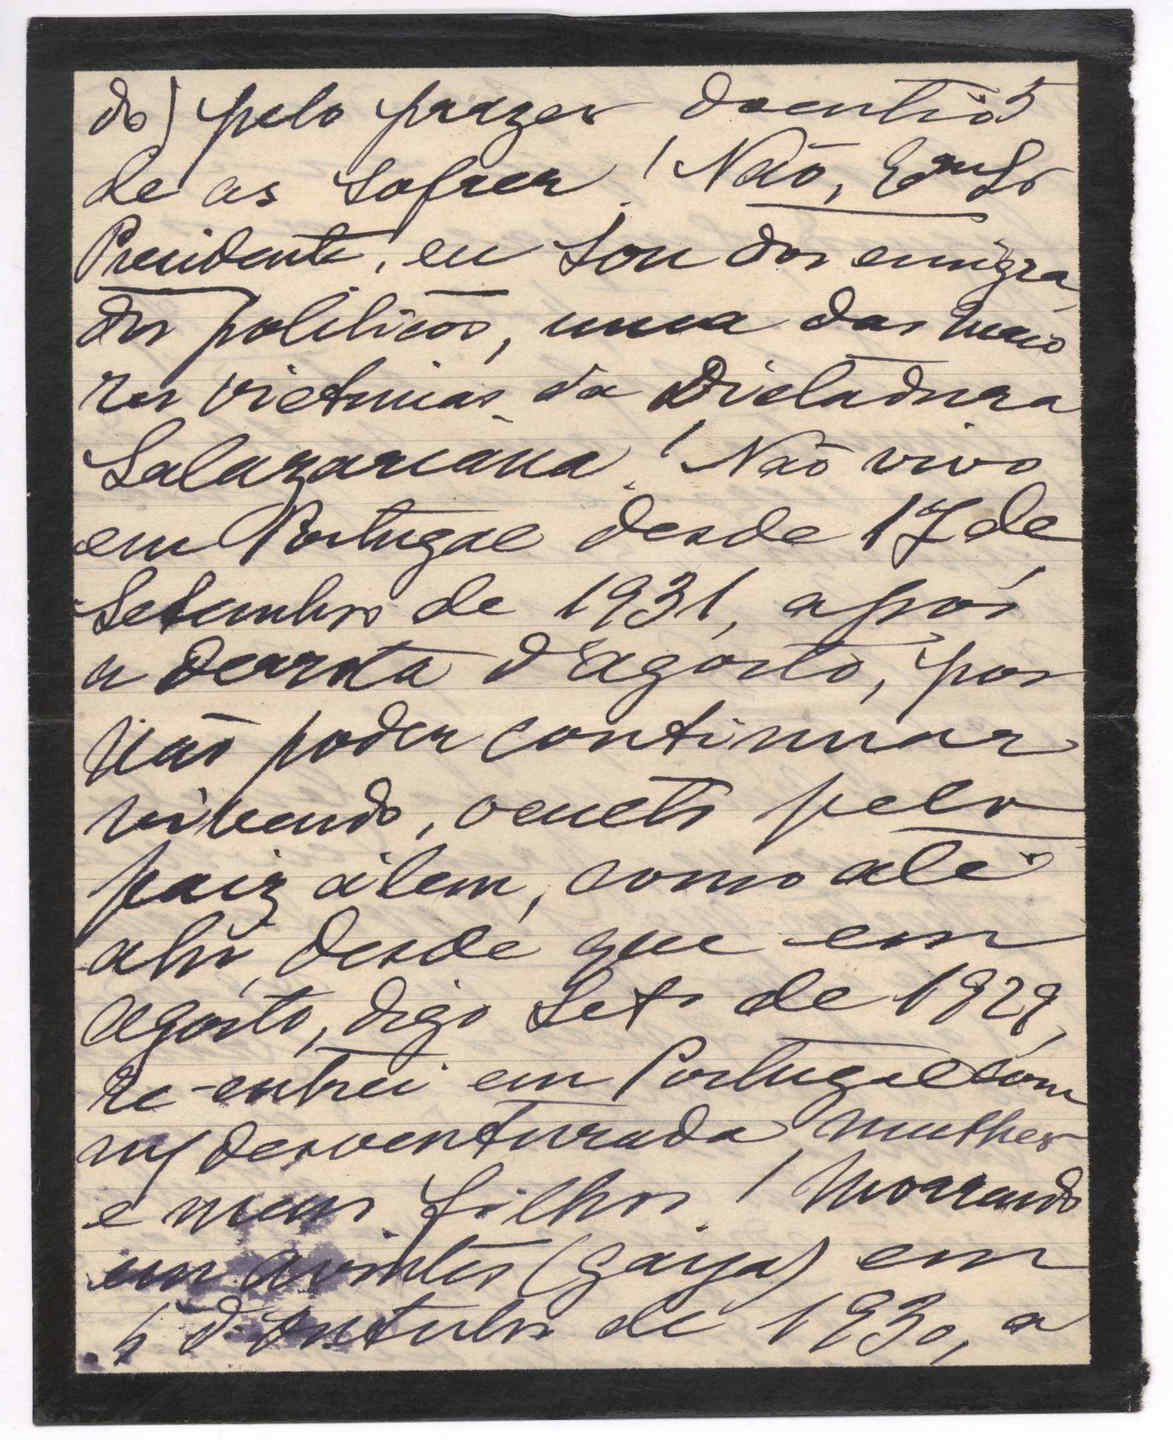 do) pelo prazer doentio 5
de as sofrer! Não, Exmo Sr
Presidente, eu sou dos emigra
dos politicos, uma das maio
res victimas da Dictadura
Salazariana! Não vivo
em Portugal desde 17 de
Setembro de 1931, após
a derrota d'agosto, por
não poder continuar
vivendo, occulto pelo
paiz álem, como até
ahi, desde que em
agosto, digo Setº de 1929,
re-entrei em Portugal com
mª desventurada mulher
e meus filhos! Morrendo
em Avintes (Gaya) em
5 d'Outubro de 1930, a